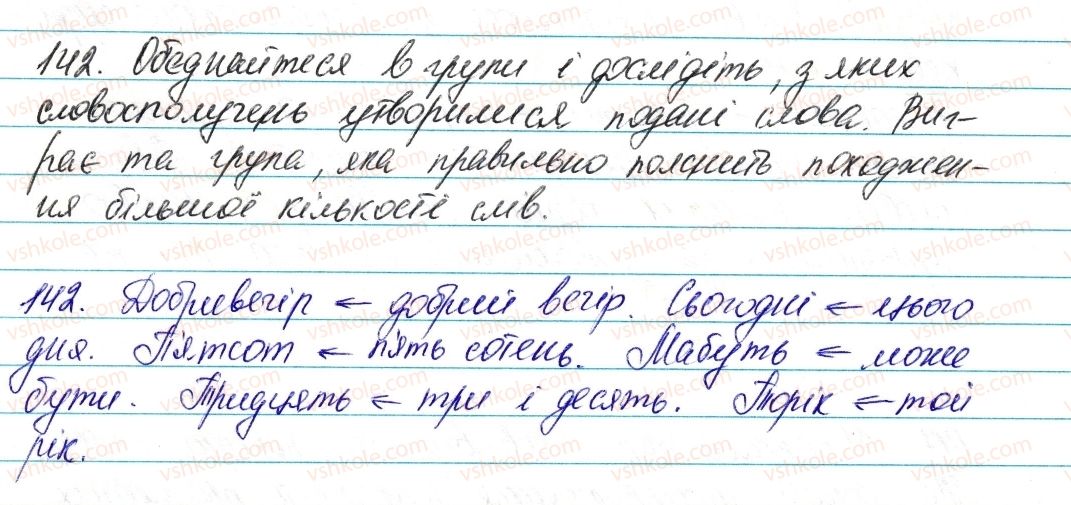 142. Обєднайтеся в групи і дослідіть, з яких
словосполучень утворилися подані слова. Виг-
рає та група, яка правильно пояснить походжен-
ня більшої кількості слів.
142. Добривечір ← добрий вечір. Сьогодні ← цього
дня. Пятсот ← пять сотень. Мабуть ← може
бути. Тридцять ← три і десять. Торік ← той
рік.